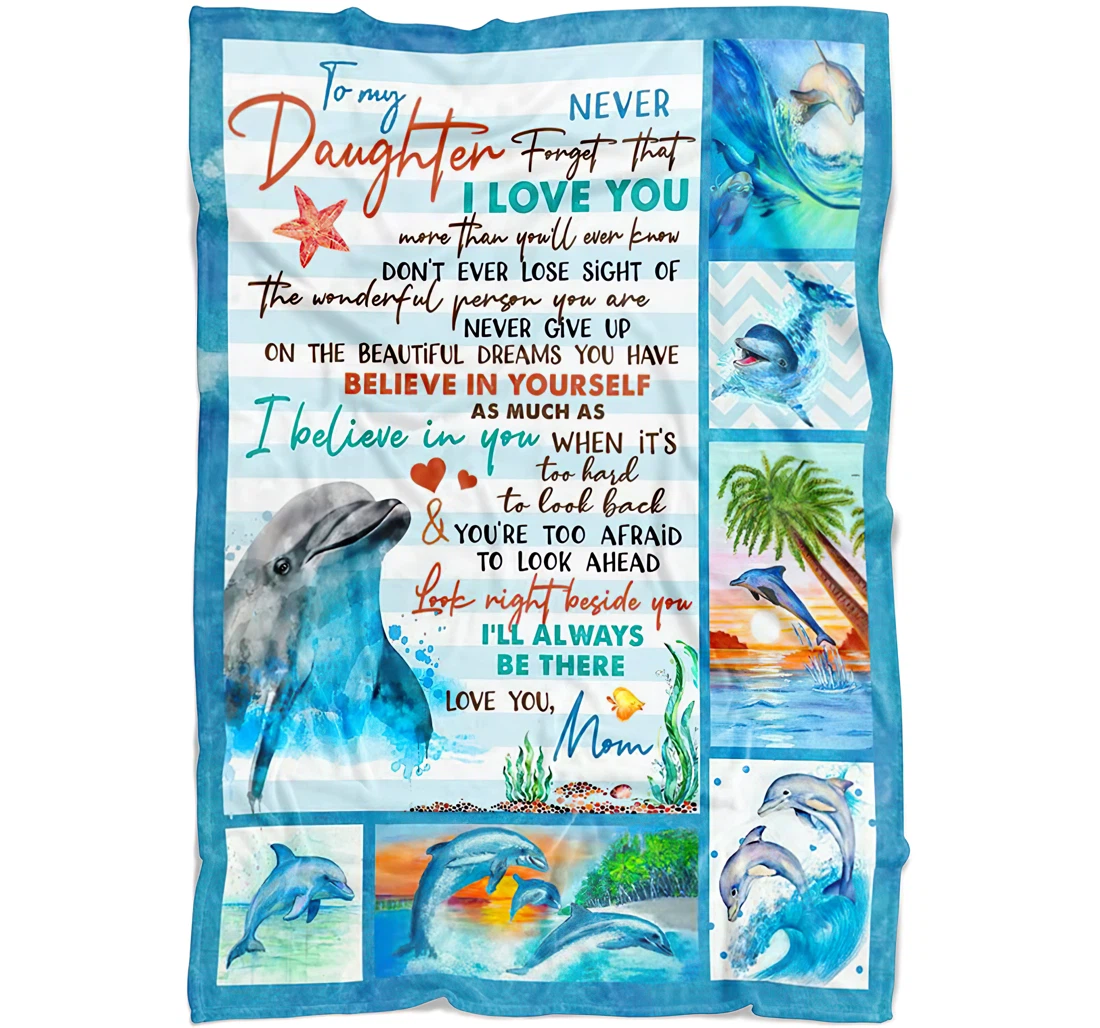 To my
Daughter
NEVER
Forget that
I LOVE YOU
more than you'll ever know
DON'T EVER LOSE SIGHT OF
the wonderful person you are
NEVER GIVE UP
ON THE BEAUTIFUL DREAMS YOU HAVE
BELIEVE IN YOURSELF
AS MUCH AS
I believe in you WHEN IT'S
too hard
to look back
& YOU'RE TOO AFRAID
TO LOOK AHEAD
Look right beside you
I'LL ALWAYS
BE THERE
LOVE YOU,
Mom